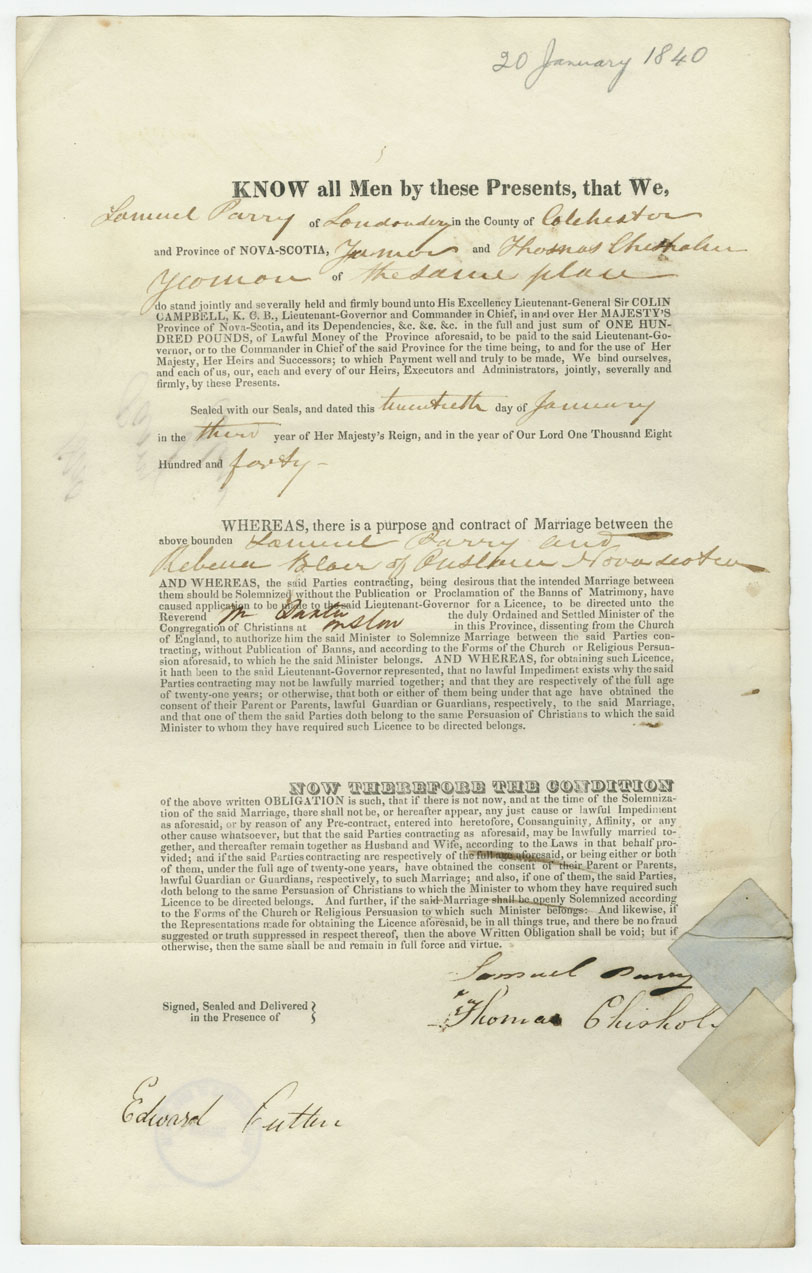 20 January 1840
KNOW all Men by these Presents, that We,
Samuel Parry of Londonderry in the County of Colchester
and Province of NOVA-SCOTIA, and Thomas Chisholm
Yeoman of the same place
do stand jointly and severally held and firmly bound unto His Excellency Lieutenant-General Sir COLIN
CAMPBELL, K. C. B., Lieutenant-Governor and Commander in Chief, in and over Her MAJESTY'S
Province of Nova-Scotia, and its Dependencies, &c. &c. &c. in the full and just sum of ONE HUN-
DRED POUNDS, of Lawful Money of the Province aforesaid, to be paid to the said Lieutenant-Go-
vernor, or to the Commander in Chief of the said Province for the time being, to and for the use of Her
Majesty, Her Heirs and Successors; to which Payment well and truly to be made, We bind ourselves,
and each of us, our, each and every of our Heirs, Executors and Administrators, jointly, severally and
firmly, by these Presents.
Sealed with our Seals, and dated this twentieth day of January
in the third year of Her Majesty's Reign, and in the year of Our Lord One Thousand Eight
Hundred and forty -
WHEREAS, there is a purpose and contract of Marriage between the
above bounden Samuel Parry and
Rebecca Blair of Onslow Nova Scotia
AND WHEREAS, the said Parties contracting, being desirous that the intended Marriage between
them should be Solemnized without the Publication or Proclamation of the Banns of Matrimony, have
caused application to be made to the said Lieutenant-Governor for a Licence, to be directed unto the
Reverend Mr Baxter the duly Ordained and Settled Minister of the
Congregation of Christians at Onslow in this Province, dissenting from the Church
of England, to authorize him the said Minister to Solemnize Marriage between the said Parties con-
tracting, without Publication of Banns, and according to the Forms of the Church or Religious Persua-
sion aforesaid, to which he the said Minister belongs. AND WHEREAS, for obtaining such Licence,
it hath been to the said Lieutenant-Governor represented, that no lawful Impediment exists why the said
Parties contracting may not be lawfully married together; and that they are respectively of the full age
of twenty-one years; or otherwise, that both or either of them being under that age have obtained the
consent of their Parent or Parents, lawful Guardian or Guardians, respectively, to the said Marriage,
and that one of them the said Parties doth belong to the same Persuasion of Christians to which the said
Minister to whom they have required such Licence to be directed belongs.
NOW THEREFORE THE CONDITION
of the above written OBLIGATION is such, that if there is not now, and at the time of the Solemniza-
tion of the said Marriage, there shall not be, or hereafter appear, any just cause or lawful Impediment
as aforesaid, or by reason of any Pre-contract, entered into heretofore, Consanguinity, Affinity, or any
other cause whatsoever, but that the said Parties contracting as aforesaid, may be lawfully married to-
gether, and thereafter remain together as Husband and Wife, according to the Laws in that behalf pro-
vided; and if the said Parties contracting are respectively of the full age aforesaid, or being either or both
of them, under the full age of twenty-one years, have obtained the consent of their Parent or Parents,
lawful Guardian or Guardians, respectively, to such Marriage; and also, if one of them, the said Parties,
doth belong to the same Persuasion of Christians to which the Minister to whom they have required such
Licence to be directed belongs. And further, if the said Marriage shall be openly Solemnized according
to the Forms of the Church or Religious Persuasion to which such Minister belongs: And likewise, if
the Representations made for obtaining the Licence aforesaid, be in all things true, and there be no fraud
suggested or truth suppressed in respect thereof, then the above Written Obligation shall be void; but if
otherwise, then the same shall be and remain in full force and virtue.
Samuel Parry
Signed, Sealed and Delivered
in the Presence of
Thomas Chisholm
Edward Cutten